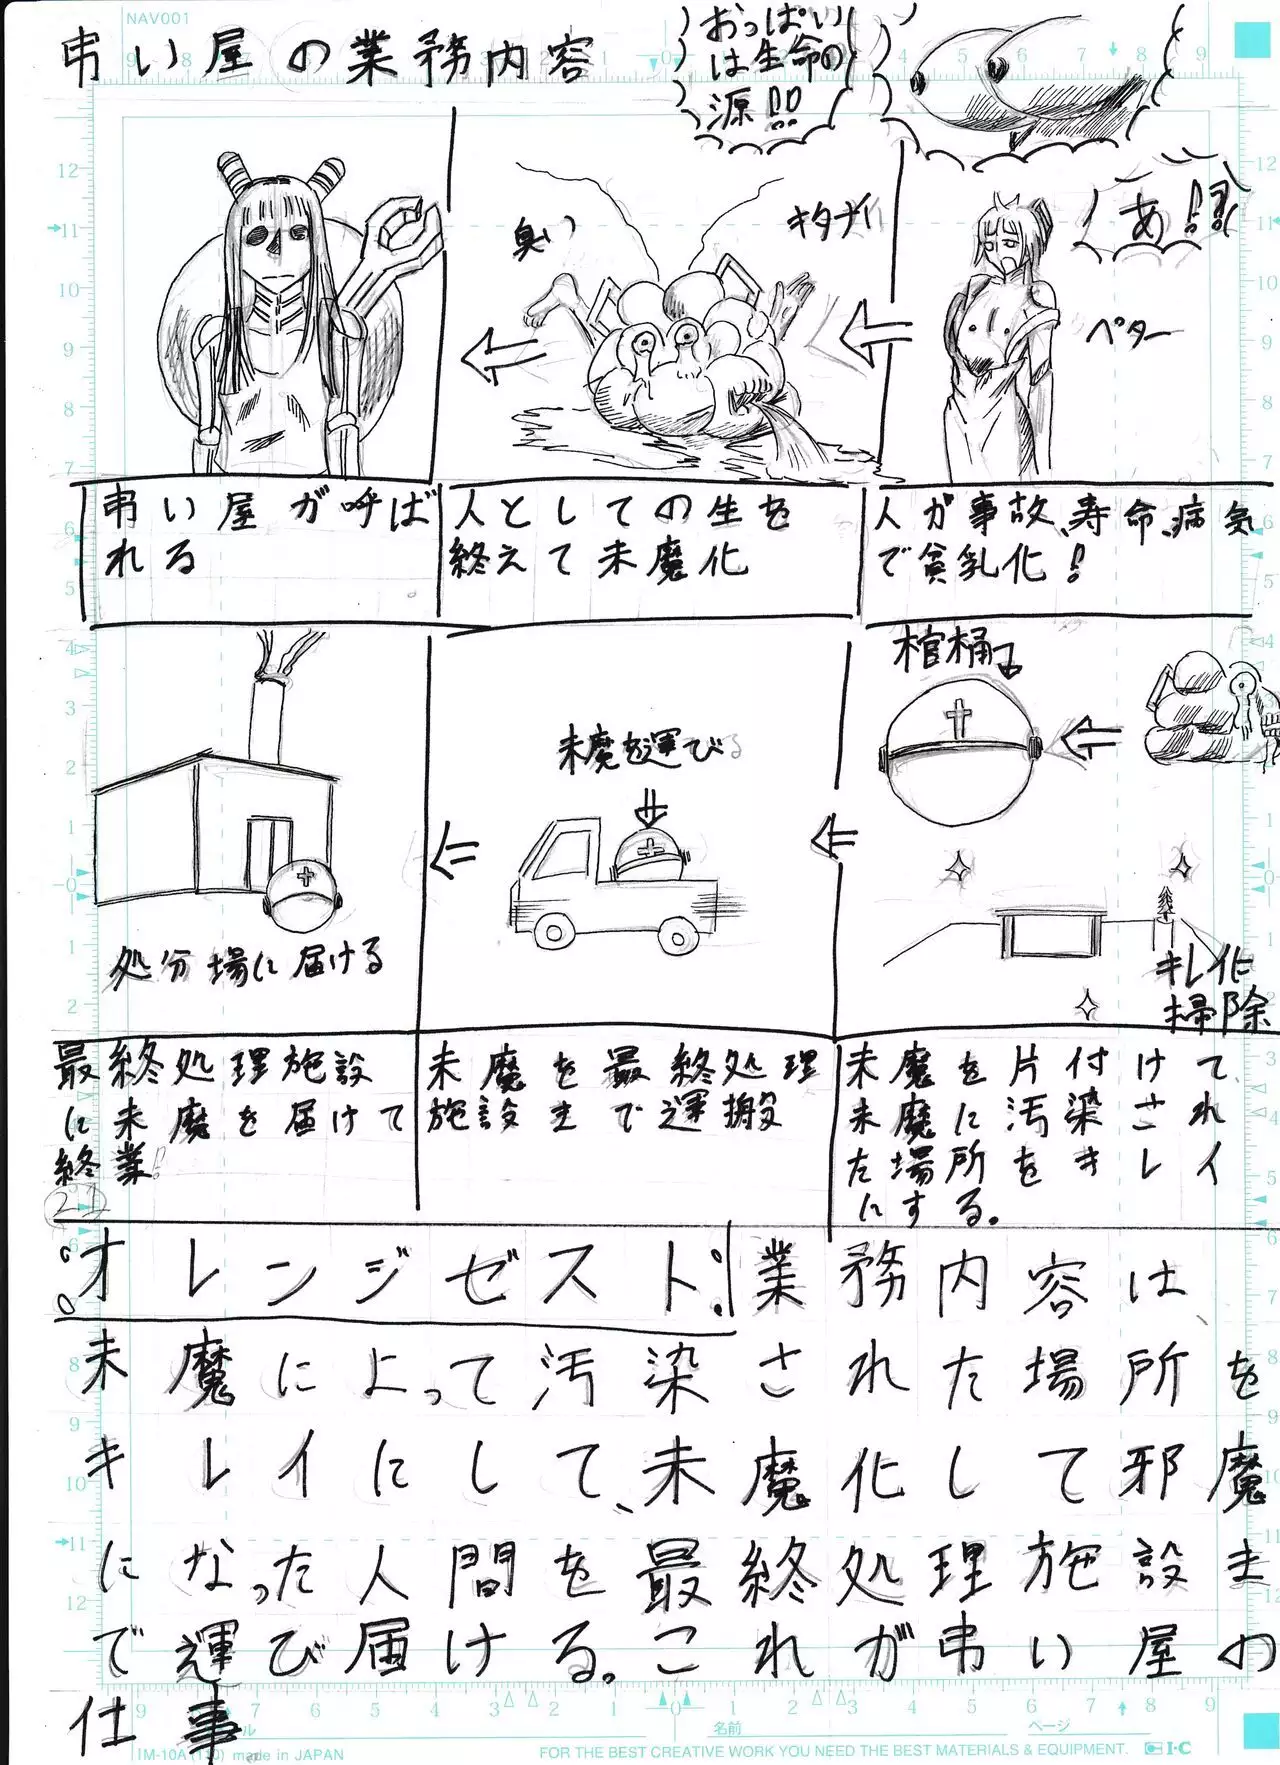 NAV001
弔い屋の業務内容
おっぱい
は生命の
源!!
あ!!
ペター
キタナイ
臭い
人が事故、寿命、病気
で貧乳化!
人としての生を
終えて未魔化
弔い屋が呼ば
れる
棺桶
キレイに
掃除
未魔を運びる
処分場に届ける
未魔を片付けて
未魔に汚染され
た場所をキレイ
にする。
未魔を最終処理
施設まで運搬
最終処理施設
に未魔を届けて
終業!!
21
オレンジゼスト
業務内容は
未魔によって汚染された場所を
キレイにして、未魔化して邪魔
になった人間を最終処理施設ま
で運び届ける。これが弔い屋の
仕事
名前
ページ
IM-10A (110) made in JAPAN
FOR THE BEST CREATIVE WORK YOU NEED THE BEST MATERIALS & EQUIPMENT.
I·C